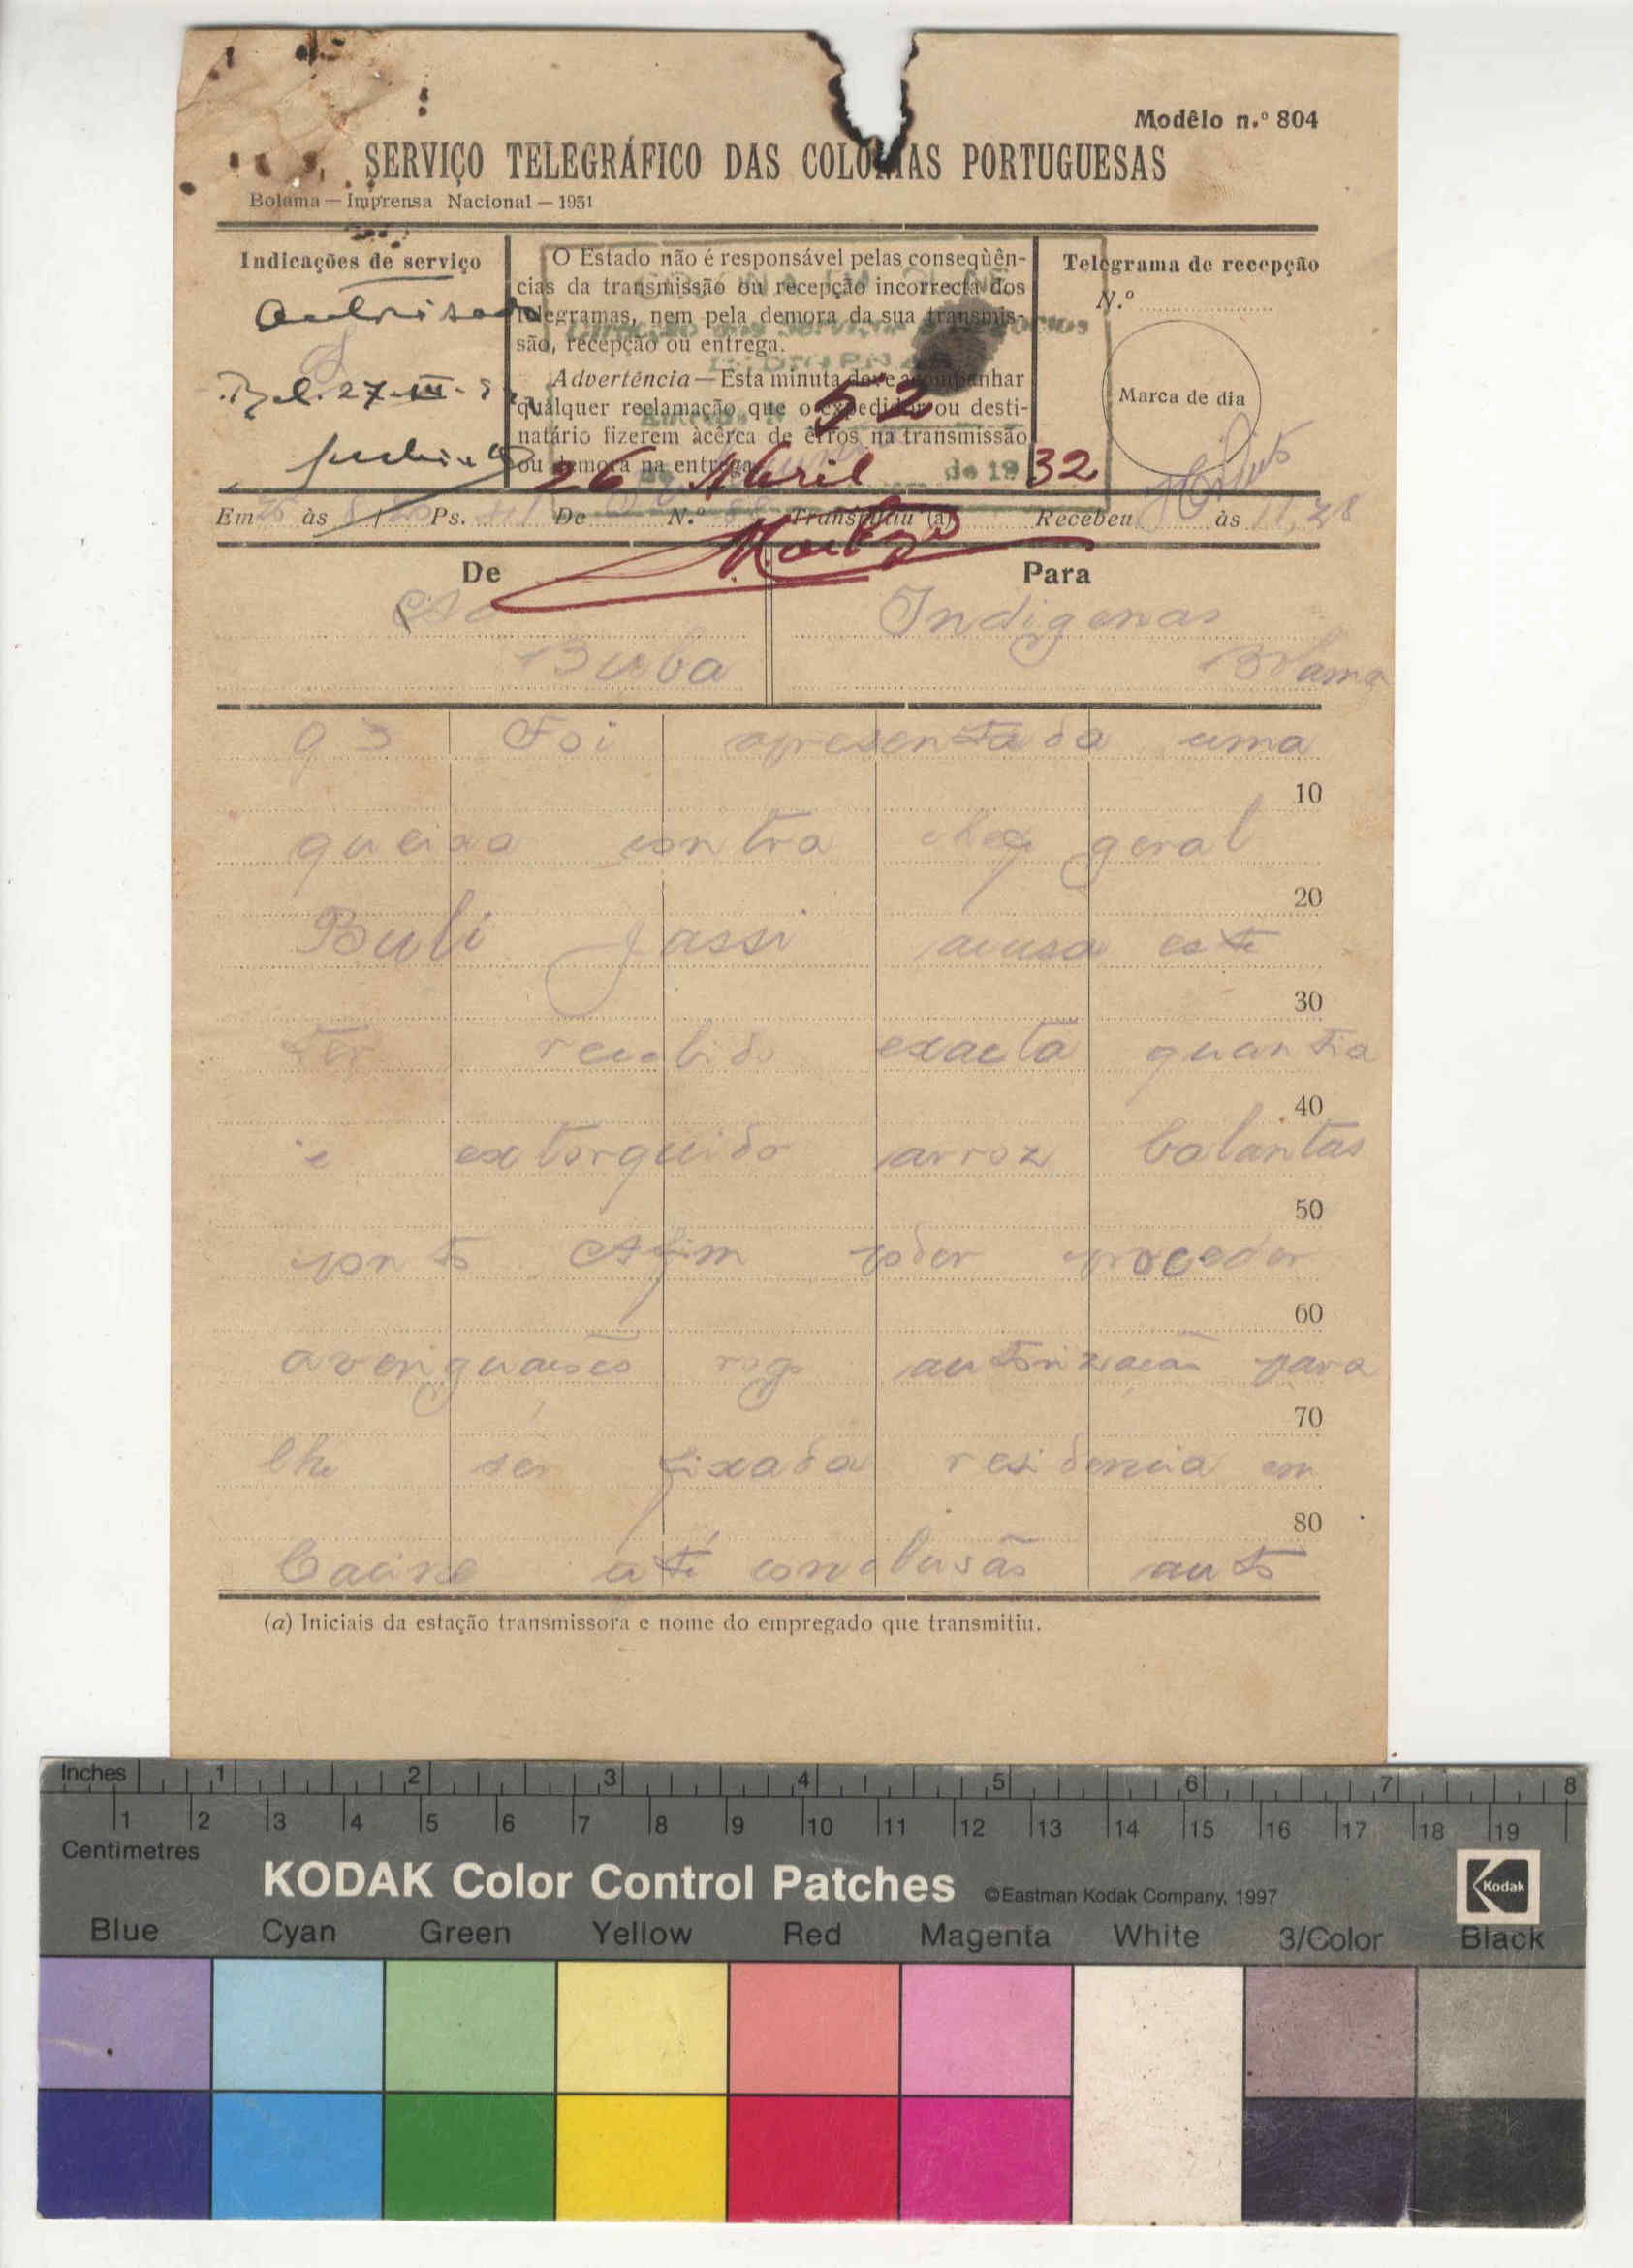 Modêlo n.º 804
SERVIÇO TELEGRÁFICO DAS COLONIAS PORTUGUESAS
Bolama — Imprensa Nacional — 1931
Indicações de serviço
Autorisado
27-III-
O Estado não é responsável pelas conseqùên-
cias da transmissão ou recepção incorrecta dos
telegramas, nem pela demora da sua transmis-
são, recepção ou entrega.
Advertência — Esta minuta deve acompanhar
qualquer reclamação que o expedidor ou desti-
natário fizerem àcêrca de êrros na transmissão
ou demora na entrega.
52
26 Abril de 1932
Telegrama de recepção
N.º
Marca de dia
Em às Ps. De N.º Transmitiu (a) Recebeu às
De
Buba
Para
Indigenas
Bolama
93 Foi apresentada uma
10
queixa contra chefe geral
20
Buli Jassi acusa este
30
ter recebido exacta quantia
40
e extorquido arroz balantas
50
ponto Afim poder proceder
60
averiguações rogo autorização para
70
lhe ser fixada residencia em
80
Cacine até conclusão auto
(a) Iniciais da estação transmissora e nome do empregado que transmitiu.
Inches 1 2 3 4 5 6 7 8
1 2 3 4 5 6 7 8 9 10 11 12 13 14 15 16 17 18 19
Centimetres
KODAK Color Control Patches ©Eastman Kodak Company, 1997
Kodak
Blue Cyan Green Yellow Red Magenta White 3/Color Black